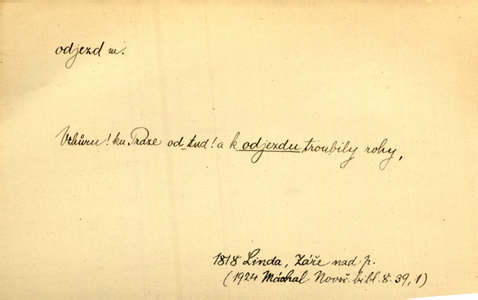 odjezd m.
Vzhůru! ku Praze od_tud! a k odjezdu troubily rohy,
1818 Linda, Záře nad p.
(1924 Máchal Novoč. bibl. 8. 39, 1)